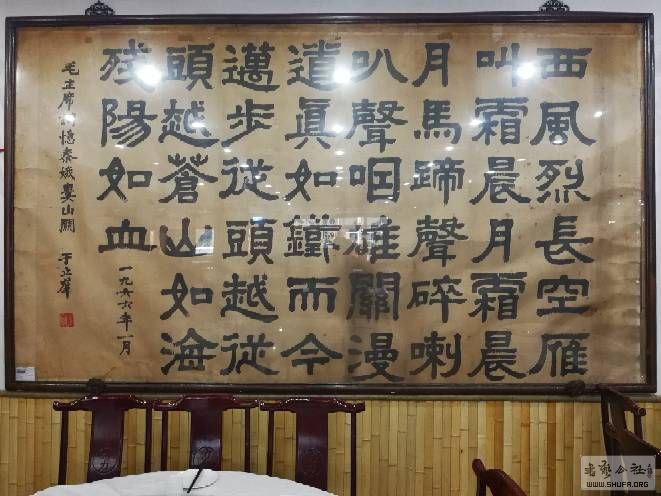 西風烈長空雁
叫霜晨月霜晨
月馬蹄聲碎喇
叭聲咽雄關漫
道眞如鐵而今
邁步從頭越從
頭越蒼山如海
殘陽如血
一九六六年一月
毛主席 憶秦娥婁山關 于立羣
書藝公社
WWW.SHUFA.ORG